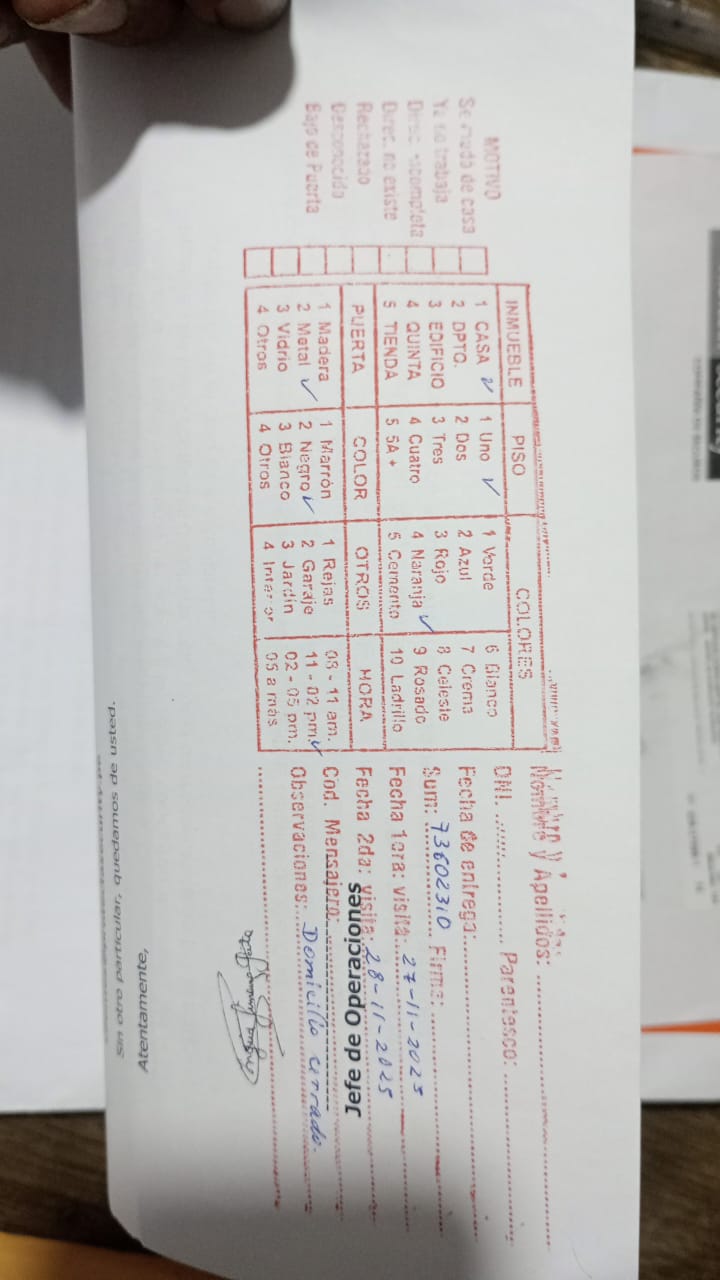 MOTIVO
Se muda de casa
Ya no trabaja
Direc. incompleta
Direc. no existe
Rechazado
Desconocido
Bajo de Puerta
INMUEBLE PISO COLORES
1 CASA ✓ 1 Uno ✓ 1 Verde 6 Blanco
2 DPTO. 2 Dos 2 Azul 7 Crema
3 EDIFICIO 3 Tres 3 Rojo 8 Celeste
4 QUINTA 4 Cuatro 4 Naranja ✓ 9 Rosado
5 TIENDA 5 5A + 5 Cemento 10 Ladrillo
PUERTA COLOR OTROS HORA
1 Madera 1 Marrón 1 Rejas 08 - 11 am.
2 Metal ✓ 2 Negro ✓ 2 Garaje 11 - 02 pm. ✓
3 Vidrio 3 Blanco 3 Jardín 02 - 05 pm.
4 Otros 4 Otros 4 Interior 05 a más
Nombre y Apellidos:
DNI. Parentesco:
Fecha de entrega:
Sum: 73602310 Firma:
Fecha 1era: visita: 27-11-2025
Fecha 2da: visita: 28-11-2025
Jefe de Operaciones
Cod. Mensajero:
Observaciones: Domicilio cerrado.
Atentamente,
Sin otro particular, quedamos de usted.